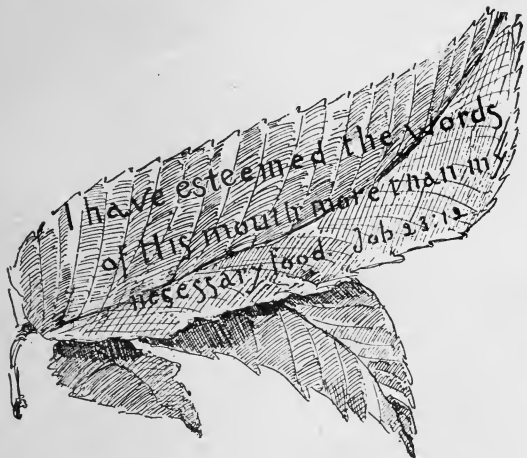 I have esteemed the words
of His mouth more than my
necessary food. Job 23:12